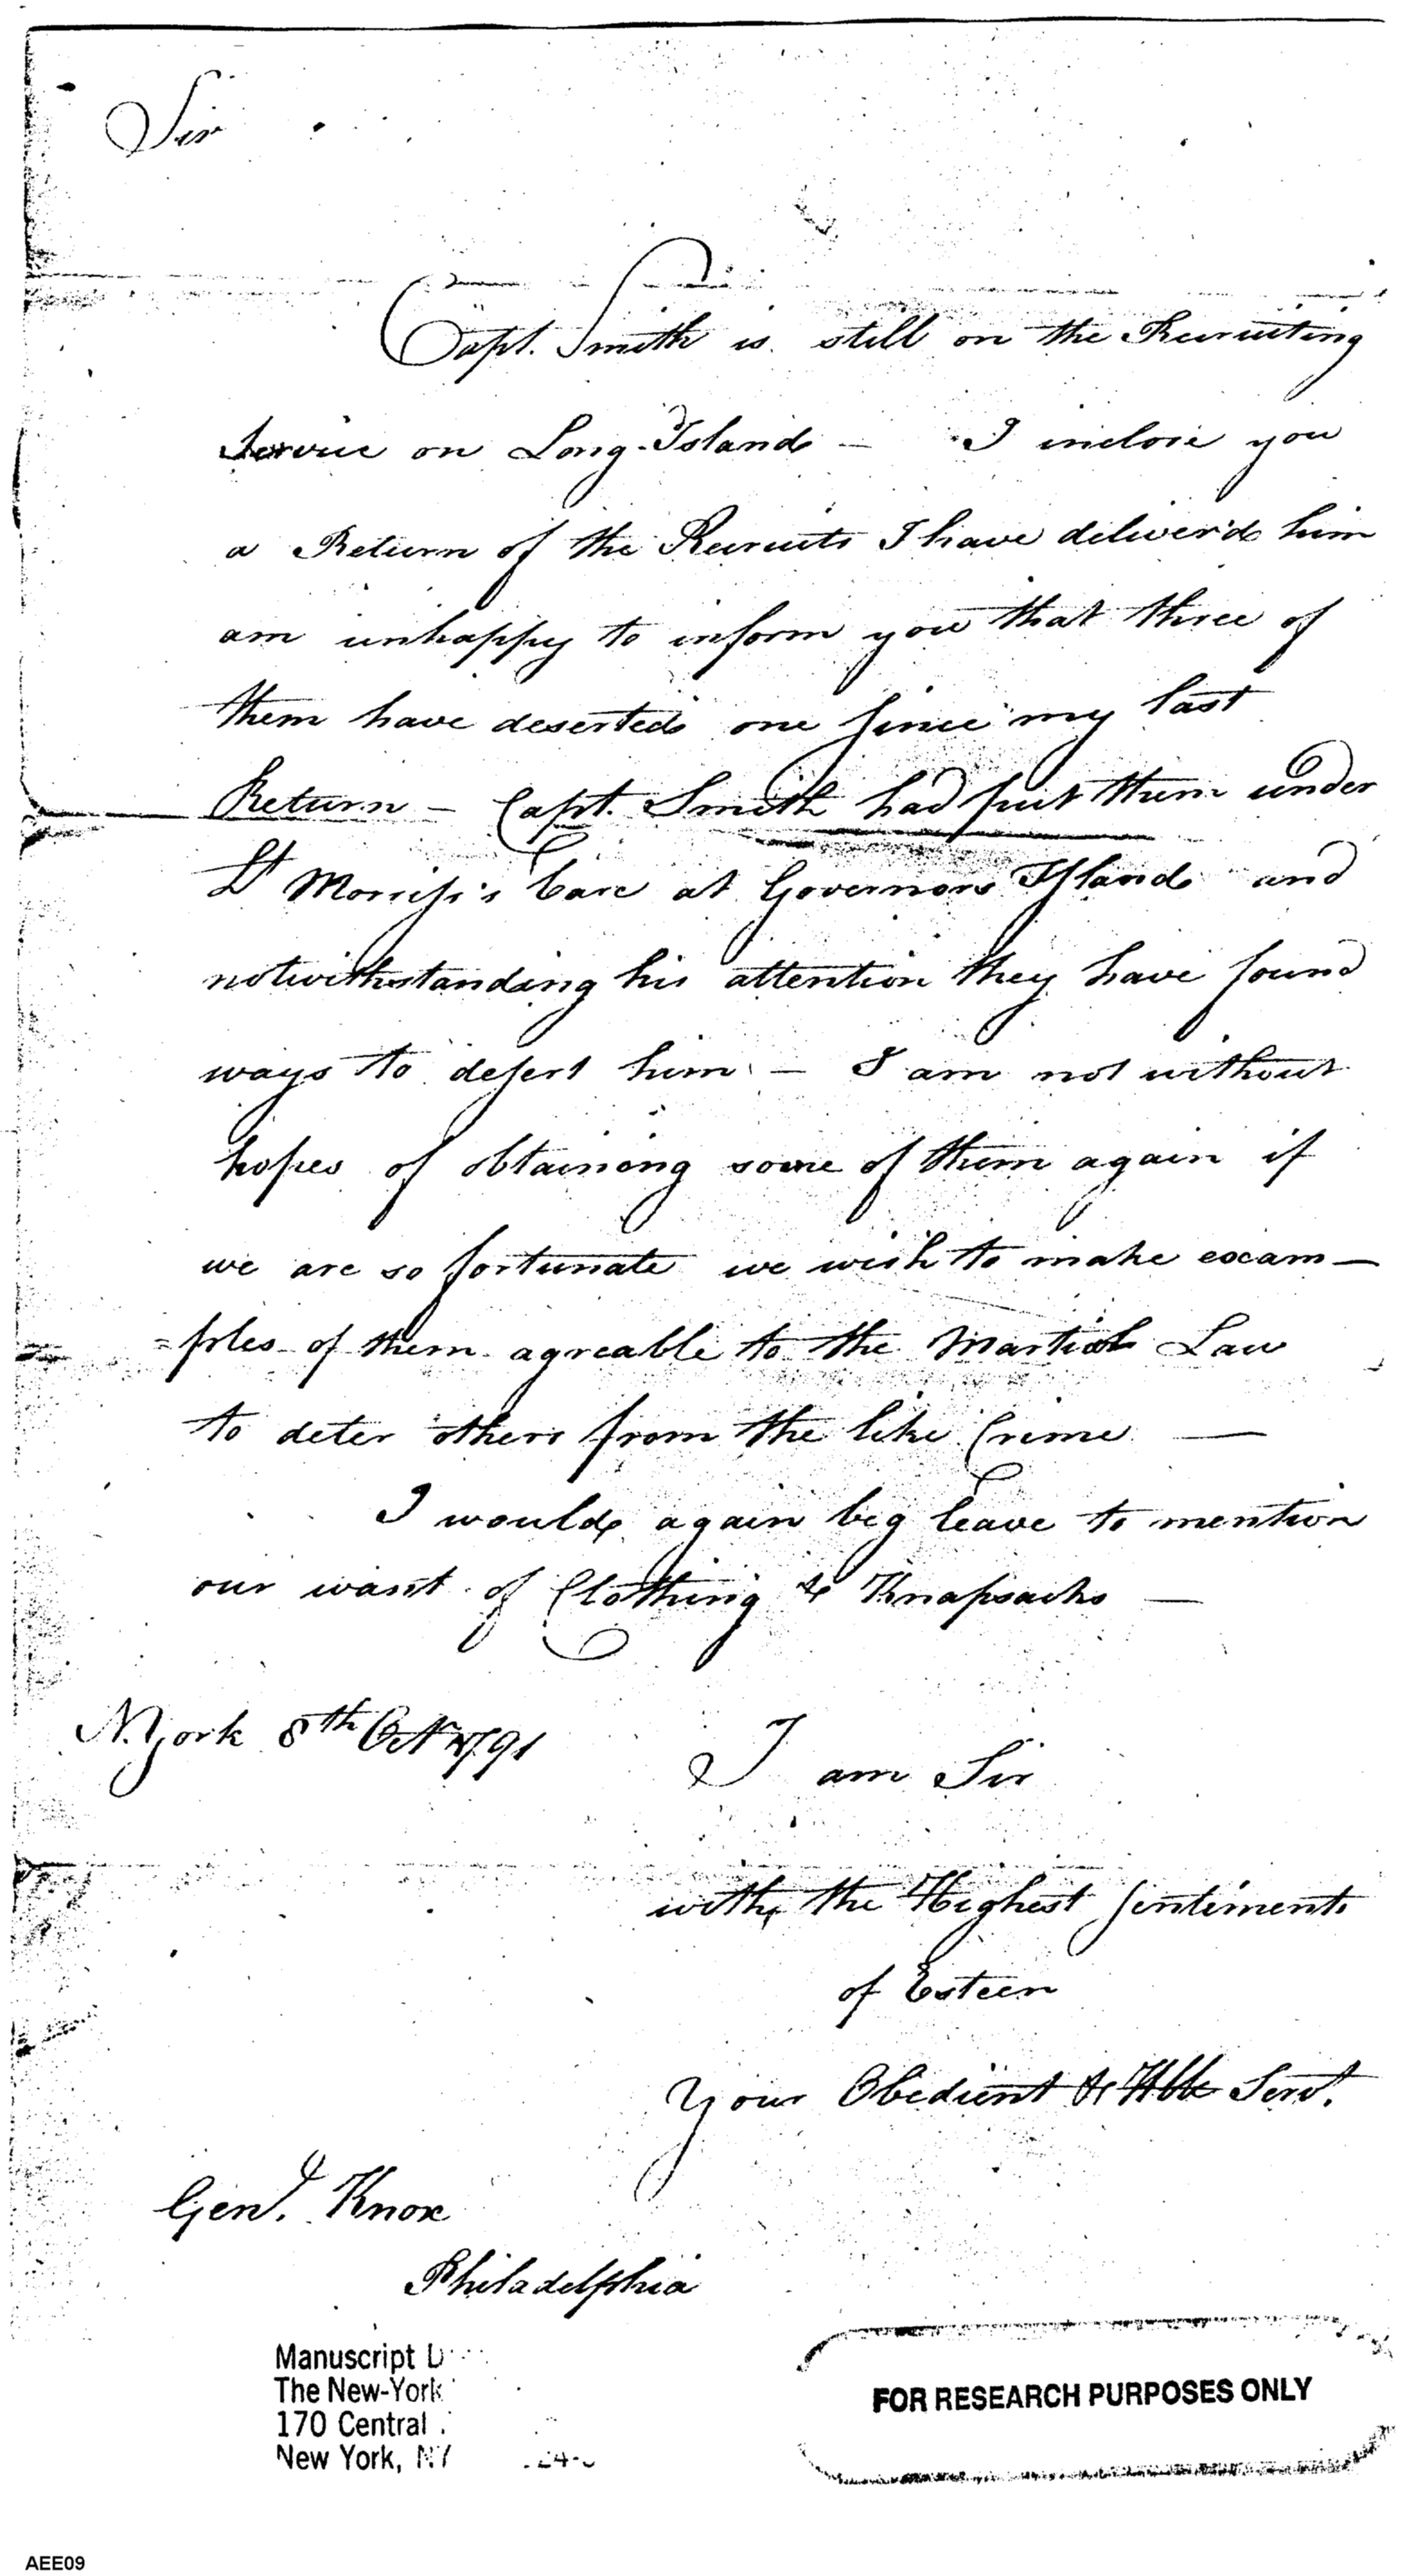 Sir
Capt. Smith is still on the Recruiting
Service on Long-Island — I inclose you
a Return of the Recruits I have deliver'd him
am unhappy to inform you that three of
them have deserted one since my last
Return — Capt. Smith had put them under
Lt Morriss's Care at Governors Island and
notwithstanding his attention they have found
ways to desert him — I am not without
hopes of obtaining some of them again if
we are so fortunate we wish to make exam—
=ples of them agreable to the Martial Law
to deter others from the like Crime —
I would again beg leave to mention
our want of Clothing & Knapsacks —
N. York 8th Octr 1791
I am Sir
with the Highest Sentiments
of Esteem
Your Obedient & Hble Servt.
Genl. Knox
Philadelphia
Manuscript
The New-York
170 Central
New York, NY
FOR RESEARCH PURPOSES ONLY
AEE09